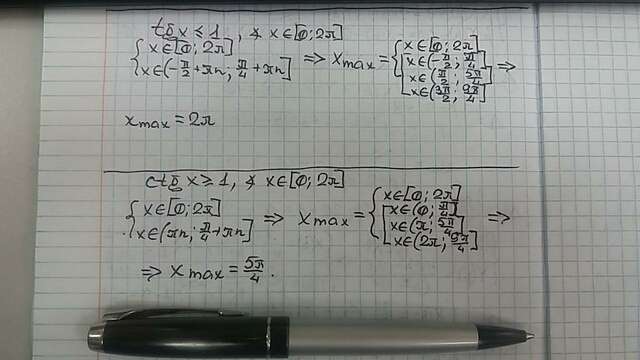 tg x ≤ 1, ∢ x ∈ [0; 2π]
{ x ∈ [0; 2π]
x ∈ (-π/2 + πn; π/4 + πn] ⇒ x max = { x ∈ [0; 2π]
[ x ∈ (-π/2; π/4]
x ∈ (π/2; 5π/4] ⇒
x ∈ (3π/2; 9π/4]
x max = 2π
ctg x ≥ 1, ∢ x ∈ [0; 2π]
{ x ∈ [0; 2π]
x ∈ (πn; π/4 + πn] ⇒ x max = { x ∈ [0; 2π]
[ x ∈ (0; π/4]
x ∈ (π; 5π/4] ⇒
x ∈ (2π; 9π/4]
⇒ x max = 5π/4.